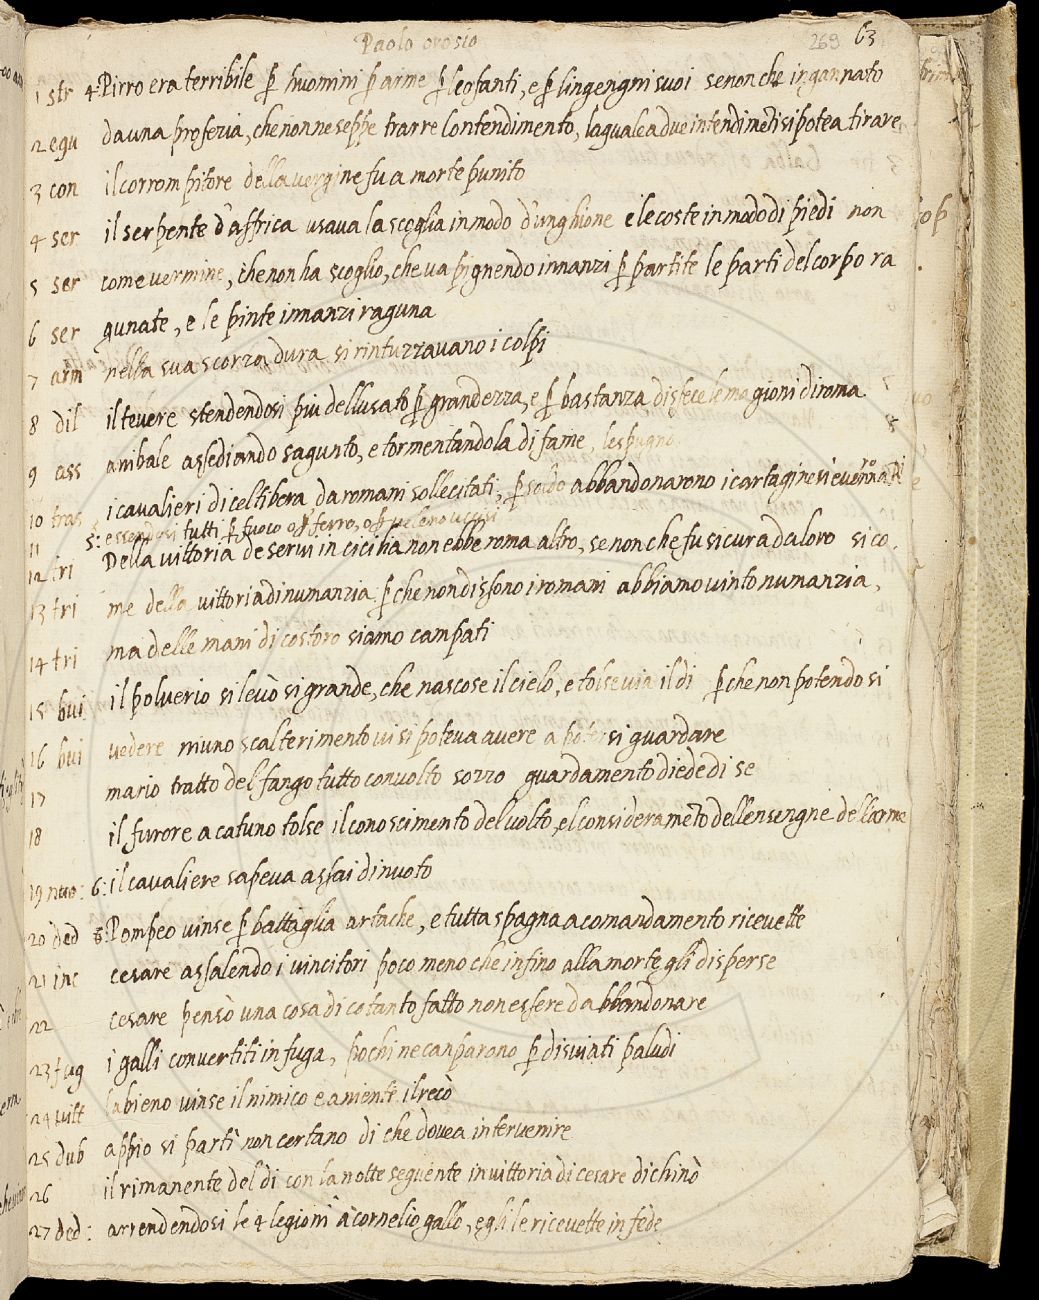 Paolo orosio 269 63
1 str 4: Pirro era terribile ꝑ huomini ꝑ arme ꝑ leofanti, e ꝑ lingengni suoi senonche ingannato
2 equ da una proferia, che non ne seppe trarre lontendimento, laquale a due intendimēti si potea tirare
3 con il corrompitore della vergine fu a morte punito
4 ser il serpente d'affrica usava la scoglia in modo d'unghione e le coste in modo di piedi non
5 ser come vermine, che non ha scoglio, che va pignendo innanzi ꝑ partite le parti del corpo ra
6 ser gunate, e le pinte innanzi raguna
7 arm nella sua scorza dura si rintuzzavano i colpi
8 dil il tevere stendendosi piu dellusato ꝑ grandezza, e ꝑ bastanza disfece le magioni di roma
9 ass anibale assediando sagunto, e tormentandola di fame, lespugno
10 tras i cavalieri di celtibera da romani sollecitati, ꝑ soldo abbandonarono i cartaginesi e vennero a Ri
11 5: essendosi tutti ꝑ fuoco oꝑ ferro, oꝑ veleno uccisi
12 tri Della vittoria de servi in cicilia non ebbe roma altro, se non che fu sicura da loro si co
13 tri me della vittoria di numanzia ꝑche non dissono i romani abbiamo vinto numanzia,
14 tri ma delle mani di costoro siamo campati
15 bui il polverio si levò si grande, che nascose il cielo, e tolse via il di ꝑche non potendo si
16 bui vedere niuno scalterimento vi si poteva avere a potersi guardare
17 mario tratto del fango tutto convolto sozzo guardamento diede di se
18 il furore a catuno tolse il conoscimento del volto, el consideramēto dellensengne dellarme
19 nuo: 6: il cavaliere sapeva assai di nuoto
20 ded 6: Pompeo vinse ꝑ battaglia artache, e tutta spagna a comandamento ricevette
21 inc cesare assalendo i vincitori poco meno che infino alla morte gli disperse
22 cesare pensò una cosa di cotanto fatto non essere da abbandonare
23 fug i galli convertiti in fuga, pochi ne canparono ꝑ disviati paludi
24 vitt labieno vinse il nimico e amente il recò
25 dub appio si partì non certano di che dovea intervenire
26 il rimanente del di con la notte seguente in vittoria di cesare dichinò
27 ded: arrendendosi le 4 legioni à cornelio gallo, egli le ricevette in fede